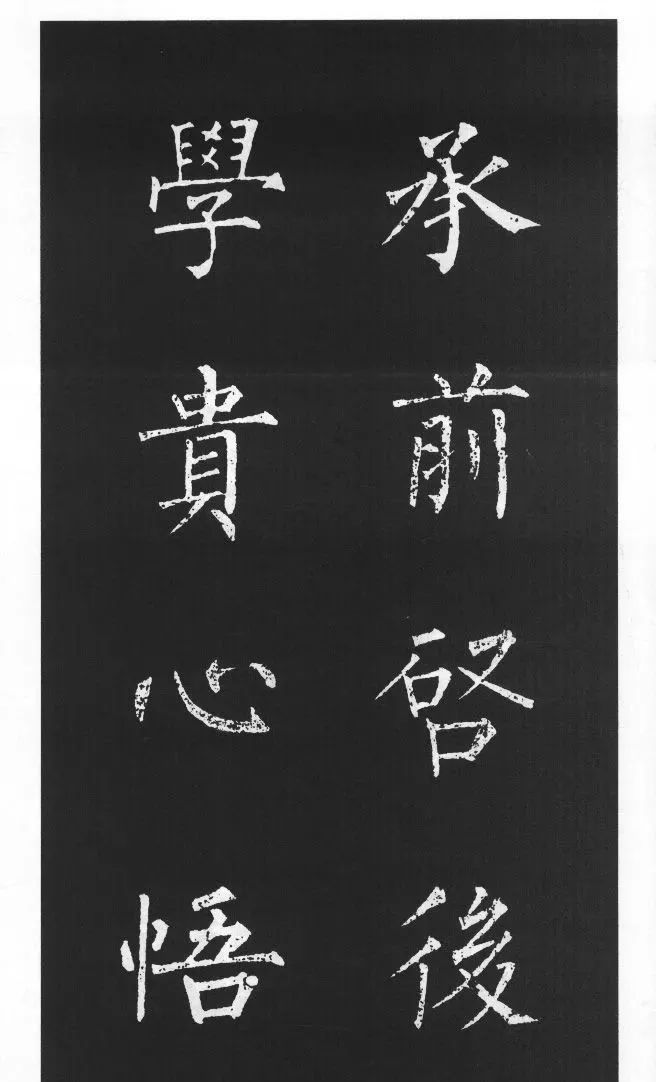 承前啓後
學貴心悟